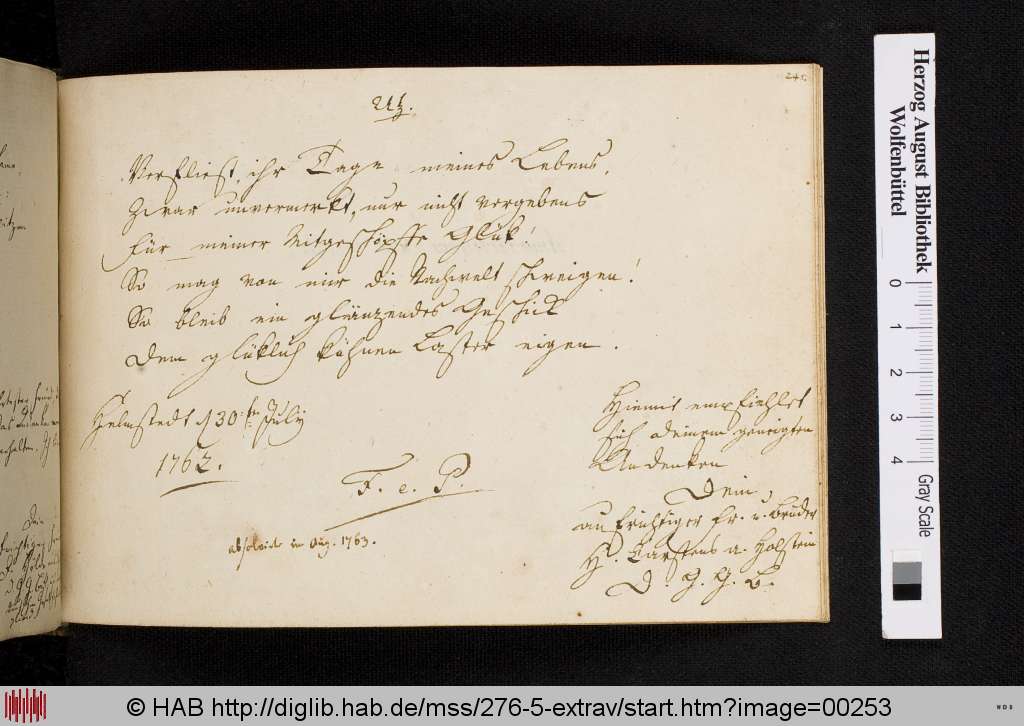 Uz.
Verfließt, ihr Tage meines Lebens,
Zwar unvermerkt, nur nicht vergebens
für meiner Mitgeschöpffe Glük!
So mag von mir die Nachwelt schweigen!
So bleib ein glänzendes Geschick
Dem glüklich kühnen Laster eigen.
Helmstedt d 30ten July
1762.
F. e. P.
absolvit in Aug. 1763.
Hiemit empfiehlet
sich deinem geneigten
Andenken
Dein
aufrichtiger Fr. u. Bruder
H. Carstens a. Holstein
D. G. G. B.
Herzog August Bibliothek
Wolfenbüttel
0 1 2 3 4
Gray Scale
© HAB http://diglib.hab.de/mss/276-5-extrav/start.htm?image=00253